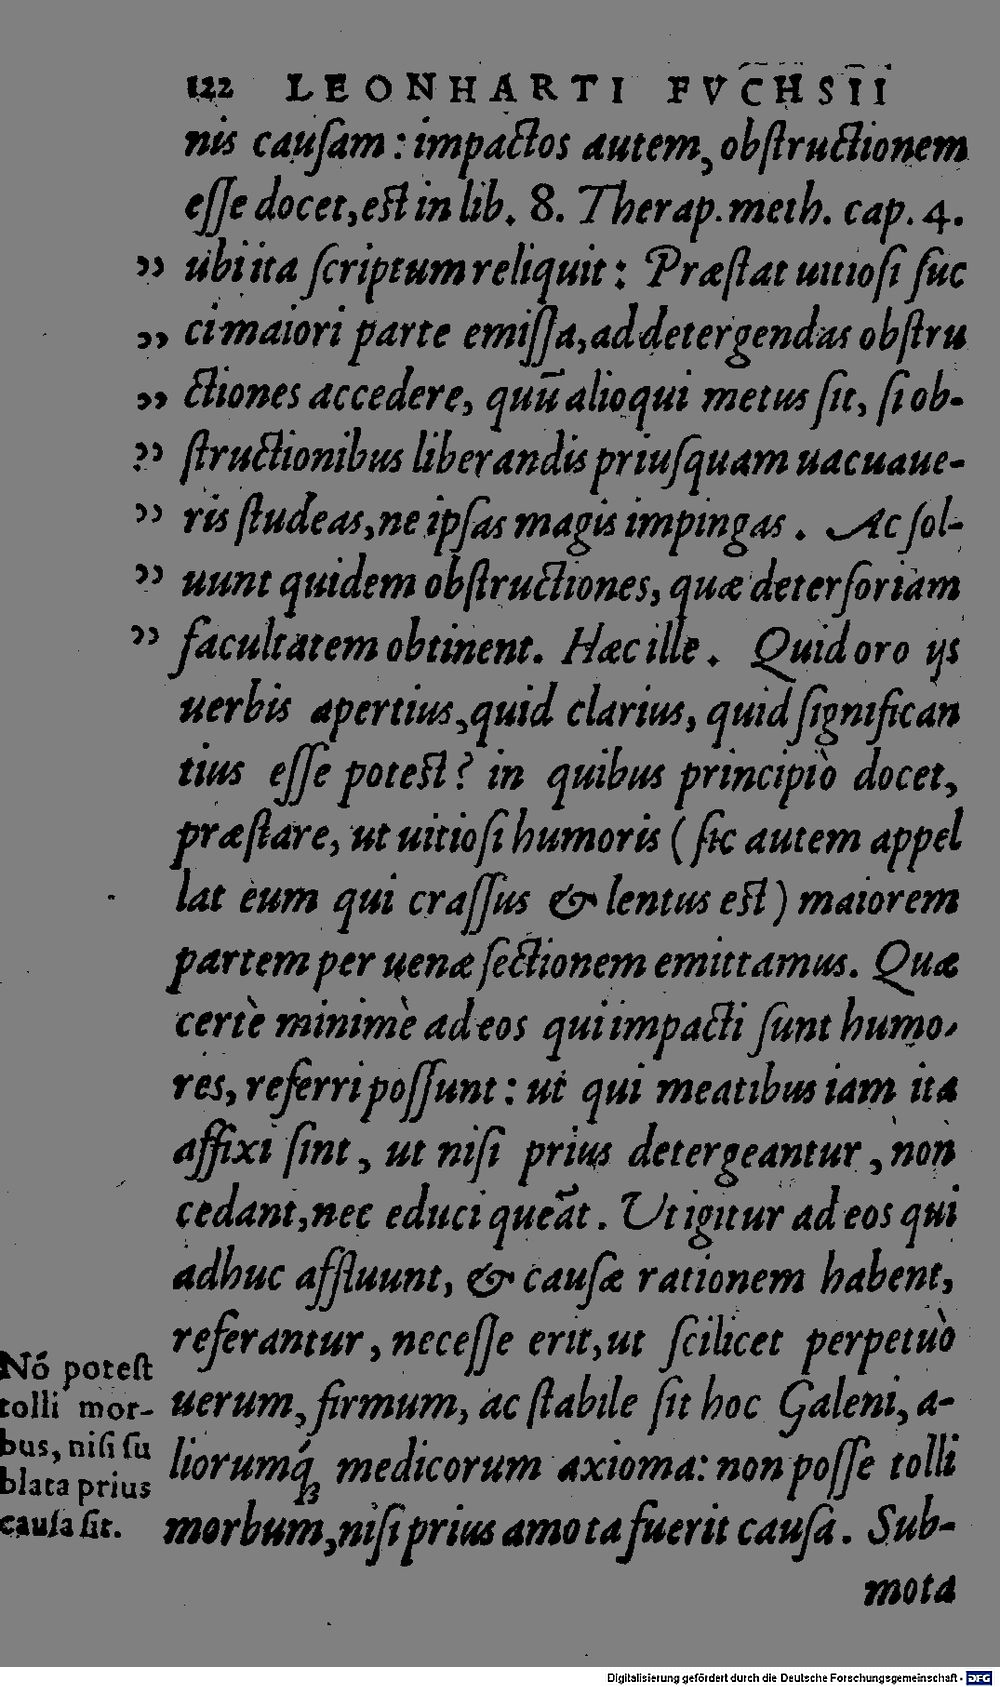 122 LEONHARTI FVCHSII
nis cauſam: impactos autem, obſtructionem
eſſe docet, eſt in lib. 8. Therap. meth. cap. 4.
” ubi ita ſcriptum reliquit: Præſtat uitioſi ſuc
” ci maiori parte emiſſa, ad detergendas obſtru
” ctiones accedere, quū alioqui metus ſit, ſi ob-
” ſtructionibus liberandis priuſquam uacuaue-
” ris ſtudeas, ne ipſas magis impingas. Ac ſol-
” uunt quidem obſtructiones, quæ deterſoriam
” facultatem obtinent. Hæc ille. Quid oro ijs
uerbis apertius, quid clarius, quid ſignifican
tius eſſe poteſt? in quibus principiò docet,
præſtare, ut uitioſi humoris (ſic autem appel
lat eum qui craſſus & lentus eſt) maiorem
partem per uenæ ſectionem emittamus. Quæ
certè minimè ad eos qui impacti ſunt humo-
res, referri poſſunt: ut qui meatibus iam ita
affixi ſint, ut niſi prius detergeantur, non
cedant, nec educi queāt. Ut igitur ad eos qui
adhuc affluunt, & cauſæ rationem habent,
referantur, neceſſe erit, ut ſcilicet perpetuò
uerum, firmum, ac ſtabile ſit hoc Galeni, a-
liorumq́ꝫ medicorum axioma: non poſſe tolli
morbum, niſi prius amota fuerit cauſa. Sub-
mota
Nō poteſt
tolli mor-
bus, niſi ſu
blata prius
cauſa ſit.
Digitalisierung gefördert durch die Deutsche Forschungsgemeinschaft - DFG